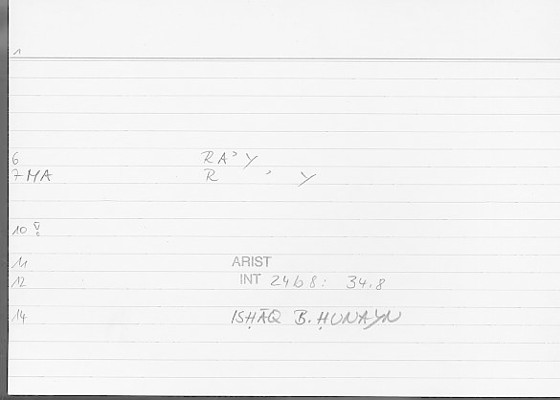 1
6 RA'Y
7 MA R ' Y
10
11 ARIST
12 INT 24b8: 34.8
14 ISḤĀQ B. ḤUNAYN